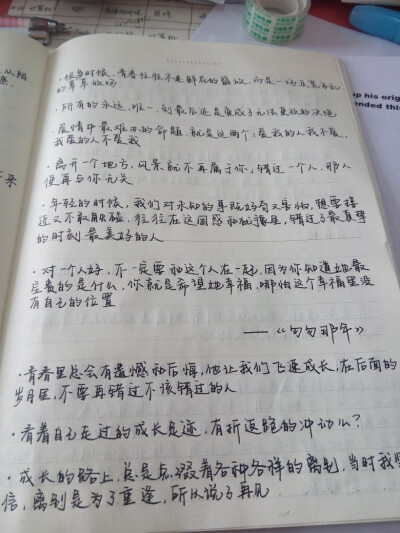 ·很多时候，青春往往不是鲜花的盛放，而是一场
的草草收场
·所有的永远、唯一，到最后还是变成了无法更改的决绝
·爱情中最难办的命题，就是这两个：爱我的人我不爱，
我爱的人不爱我
·离开一个地方，风景就不再属于你，错过一个人，那人
便再与你无关
·年轻的时候，我们对未知的事既好奇又害怕，想要接
近又不敢触碰，往往在这困惑和犹豫里，错过了最真挚
的时刻 最美好的人
·对一个人好，不一定要和这个人在一起，因为你知道她最
宝贵的是什么，你就是希望她幸福，哪怕这个幸福里没
有自己的位置
——《匆匆那年》
·青春里总会有遗憾和后悔，他让我们飞速成长，在后面的
岁月里，不要再错过不该错过的人
·看着自己走过的成长足迹，有折返跑的冲动么？
·成长的路上，总是点缀着各种各样的离别，当时我坚
信，离别是为了重逢，所以说了再见
up his orig
ended this